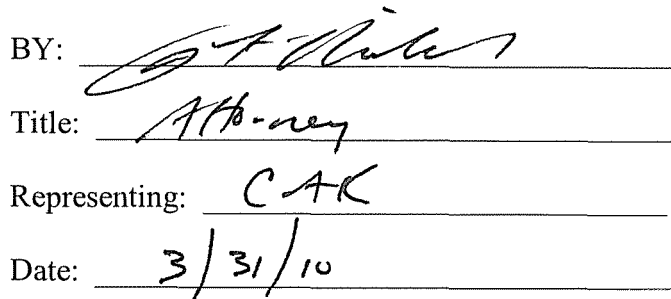 BY:
Title: Attorney
Representing: CAK
Date: 3/31/10